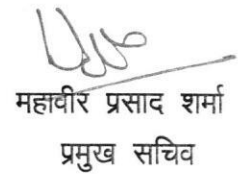 महावीर प्रसाद शर्मा
प्रमुख सचिव